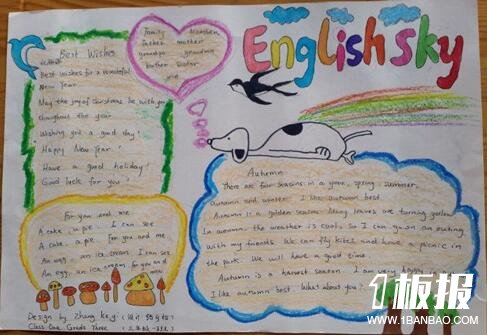 English sky
Best Wishes
Best wishes for a wonderful
New Year.
May the joy of christmas be with you
throughout the year
Wishing you a good day!
Happy New Year!
Have a good holiday!
Good luck for you!
Family Members
father mother
grandpa grandma
brother sister
me
Autumn
There are four seasons in a year, spring, summer,
autumn and winter. I like autumn best.
Autumn is a golden season. Many leaves are turning yellow.
In autumn, the weather is cool, so I can go on outing
with my friends. We can fly kites and have a picnic in
the park. We will have a good time.
Autumn is a harvest season. I am very happy in
I like autumn best. What about you?
For you and me
A cake, a pie. I can see
A cake, a pie. For you and me.
An egg, an ice cream. I can see
An egg, an ice cream. for you and
Design by Zhang
Class One, Grade Three
板报
WWW.1BANBAO.COM